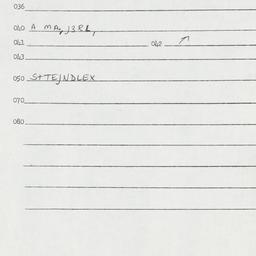 036
040 A MA, J3RL,
041 042
043
050 S+TEJNDLEX
070
080